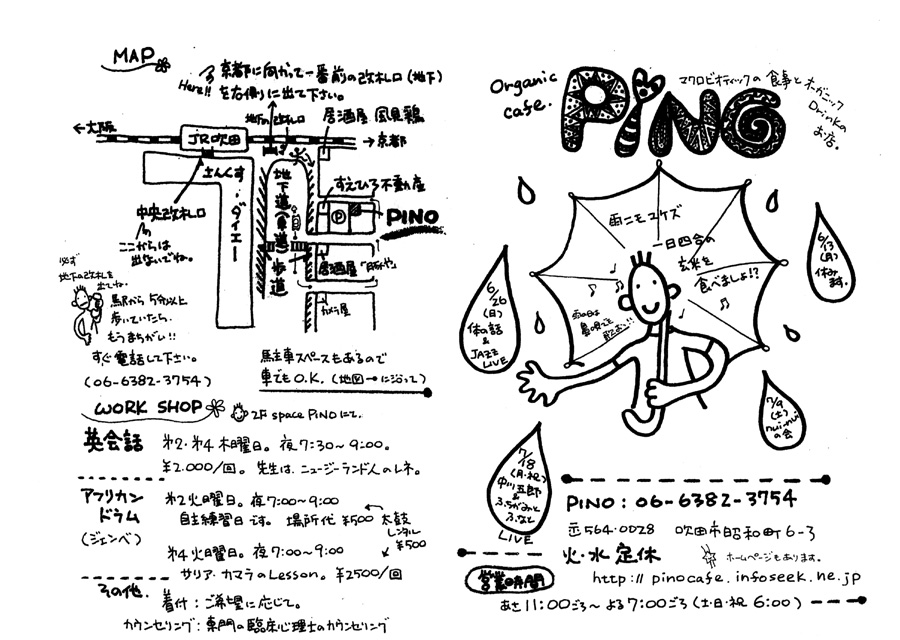 MAP
Here!!
京都に向かって一番前の改札口(地下)
を右側に出て下さい。
地下の改札口
居酒屋 風見鶏
←大阪
JR吹田
→京都
さんくす・ダイエー
地下道(車道)
歩道
すえひろ不動産
P
PINO
中央改札口
ここからは
出ないでね。
居酒屋
カメラ屋
必ず
地下の改札を
出てね。
駅から5分以上
歩いていたら、
もうまちがい!!
すぐ電話して下さい。
(06-6382-3754)
駐車スペースもあるので
車でもO.K.(地図→に沿って)
WORK SHOP
2F space PiNOにて.
英会話
第2・第4木曜日。夜7:30~9:00。
¥2.000/回。先生は、ニュージーランド人のレネ。
アフリカン
ドラム
(ジェンベ)
第2火曜日。夜7:00~9:00
自主練習日です。場所代¥500
太鼓
レンタル
¥500
第4火曜日。夜7:00~9:00
サリア・カマラのLesson。¥2500/回
その他.
着付:ご希望に応じて。
カウンセリング:専門の臨床心理士のカウンセリング
Organic
cafe.
PiNO
マクロビオティックの食事とオーガニック
Drinkの
お店。
雨ニモマケズ
一日四合の
玄米を
食べましょ!?
6/13
(月)
休み
ます.
6/26
(日)
体の話
&
JAZZ
LIVE
7/9
(土)
nui-nui
の会
7/18
(月・祝)
中川五郎
&
ふちがみと
ふなと
LIVE
PiNO:06-6382-3754
〒564-0028 吹田市昭和町6-3
火・水定休
ホームページもあります.
http://pinocafe.infoseek.ne.jp
営業時間
あさ11:00ごろ~よる7:00ごろ(土・日・祝 6:00)